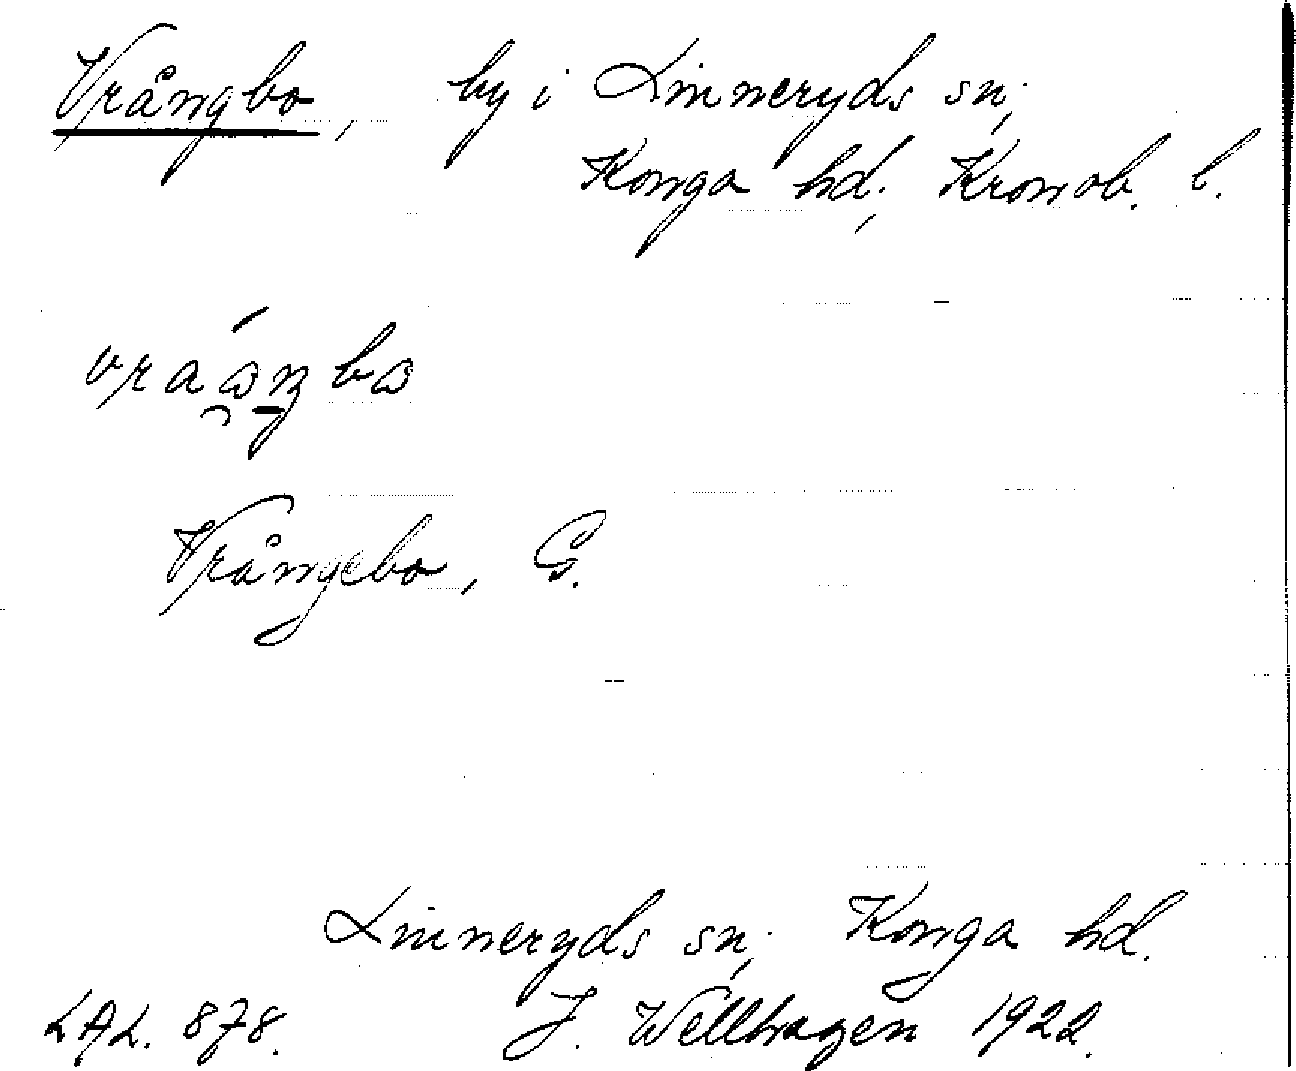 Vrångbo, by i Linneryds sn;
Konga hd; Kronob. l.
Vrångebo, G.
Linneryds sn; Konga hd.
LAL. 878. J. Wellhagen 1922.